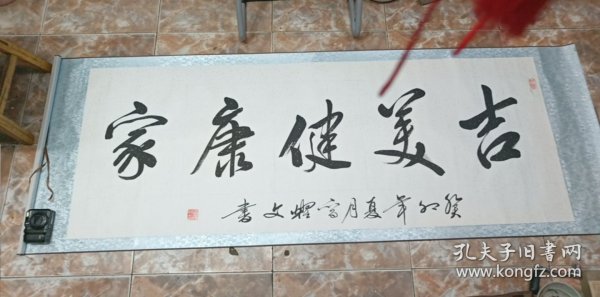 吉美健康家
癸卯年夏月高耀文書
孔夫子旧书网
www.kongfz.com